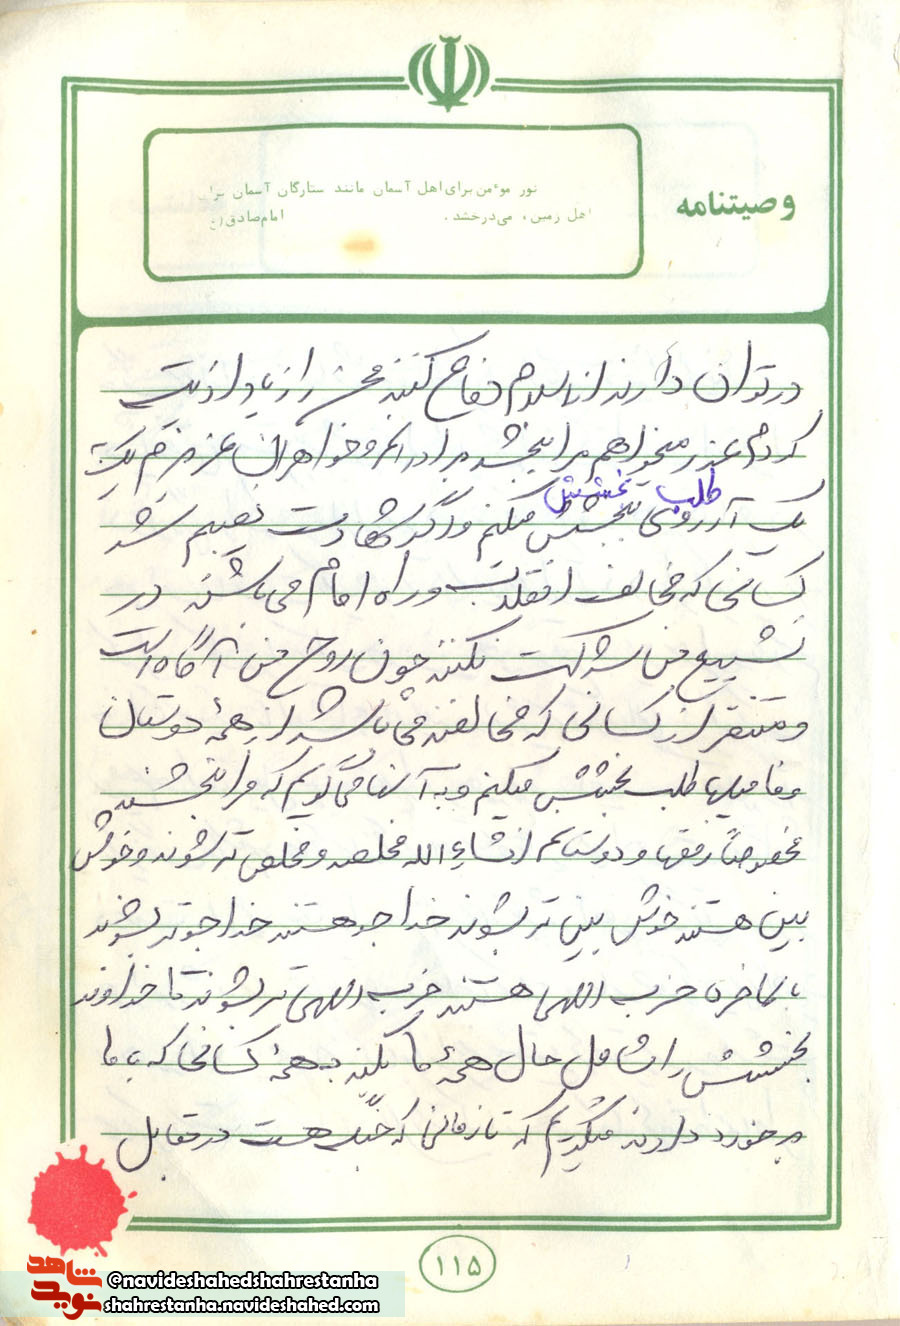 وصیتنامه
نور موءمن برای اهل آسمان مانند ستارگان آسمان برای
اهل زمین، می‌درخشد.
امام صادق (ع
در توان دارند از اسلام دفاع کنند من را زیاد اذیت
کردم عذر میخواهم مرا ببخشید برادرانم و خواهران عزیزم
طلب بخشش
یک آرزوی بخشش میکنم و اگر شهادت نصیبم شد
کسانی که مخالف انقلاب و راه امام می باشند در
تشییع من شرکت نکنند چون روح من آگاه است
و متنفر از کسانی که مخالفند می باشد از همهٔ دوستان
و فامیلها طلب بخشش میکنم و به آنها می گویم که مرا ببخشند
مخصوصاً رفقها و دوستانم انشاءالله مخلصند و مخلص تر شوند و خوش
بین هستند خوش بین تر بشوند خدا جو هستند خدا جوتر بشوند
بالاخره حزب اللهی هستند حزب اللهی تر بشوند تا خداوند
بخشش را شامل حال همهٔ ما بکند به همهٔ کسانی که با ما
برخورد دارند میگویم که تا زمانی که جنگ هست در مقابل
۱۱۵
شاهد
نوید
@navideshahedshahrestanha
shahrestanha.navideshahed.com